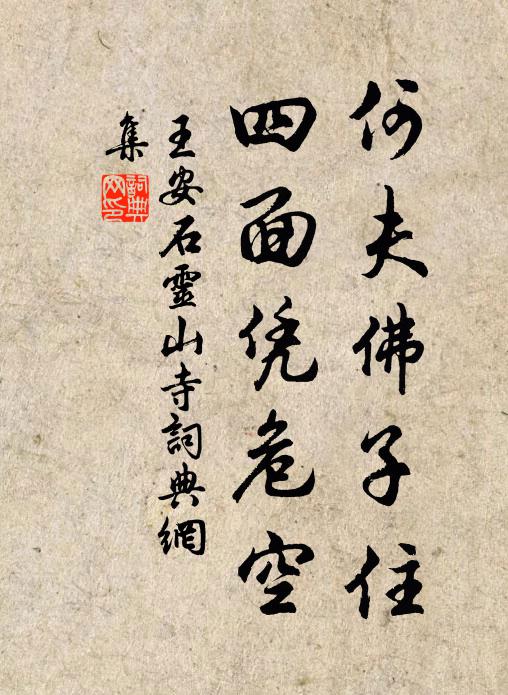 何夫佛子住
四面凭危空
王安石靈山寺詞典網
集
詞典
网印